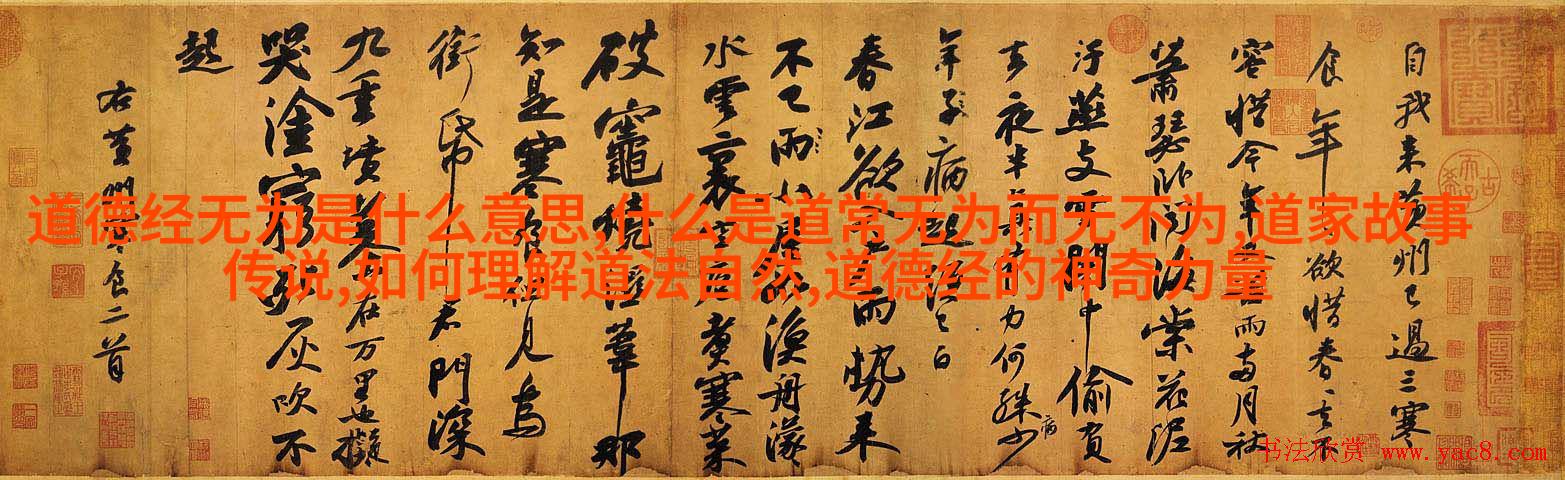 自我来黄州已過三寒
食年〻欲惜春〻去不
容惜今年又苦雨两月秋
蕭瑟卧聞海棠花泥
汙燕支雪闇中偷負
去夜半真有力何殊少
年子病起頭已白
春江欲入户雨勢来
不已雨小屋如漁舟濛〻
水雲裏空庖煑寒菜
破竈燒濕葦那
知是寒食但見烏
銜帋君門深
九重墳墓在万里也擬
哭塗窮死灰吹不
起
右黄州寒食二首
道德经无为是什么意思,什么是道常无为而无不为,道家故事
传说,如何理解道法自然,道德经的神奇力量
书法欣赏 www.yac8.com